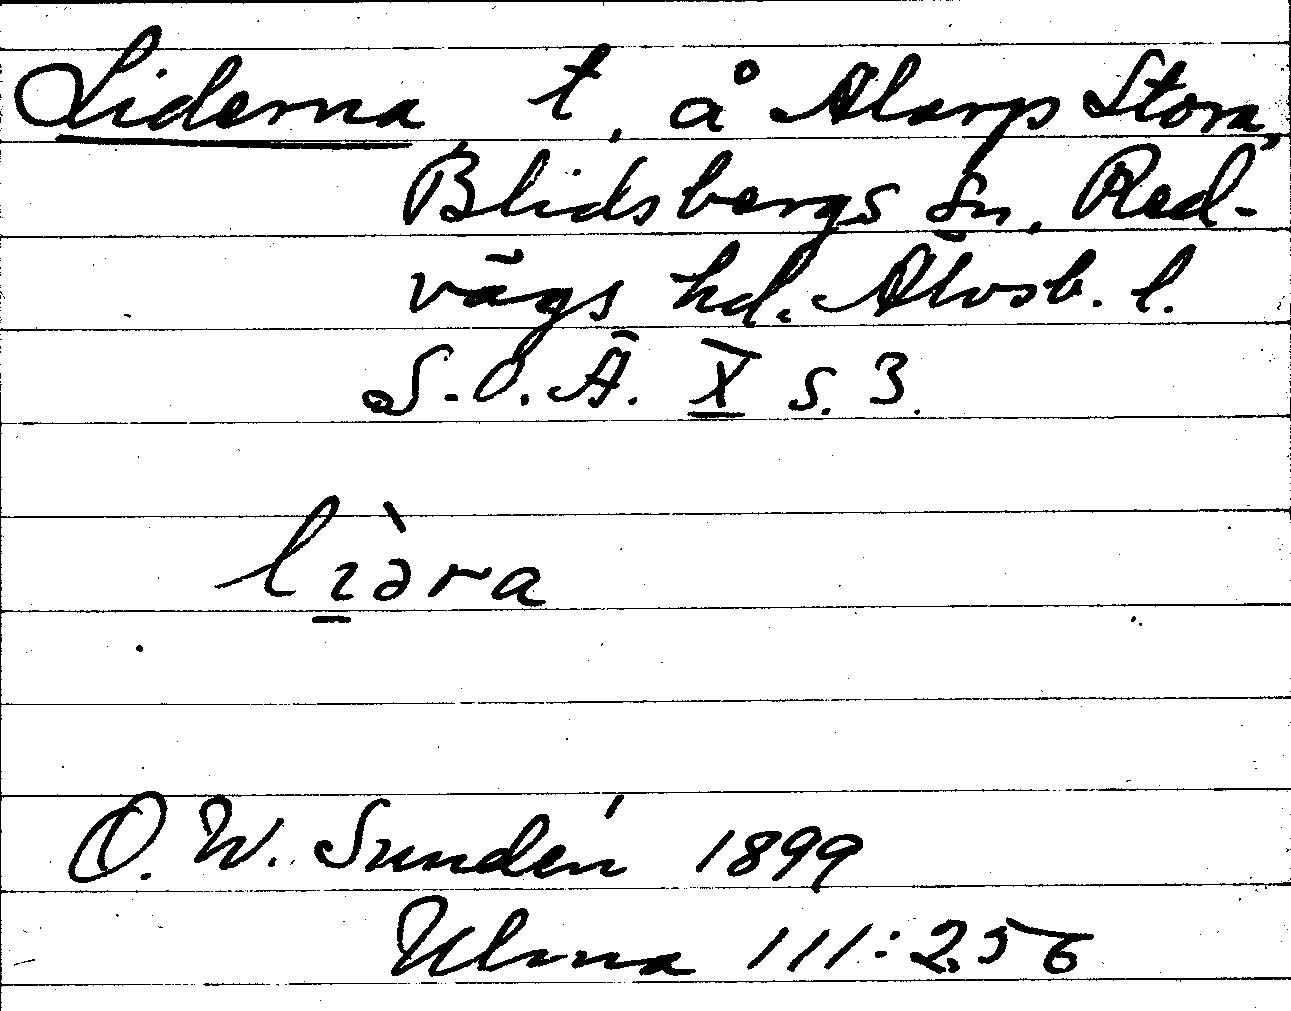 Liderna t. å Alarp Stora,
Blidsbergs sn, Red-
vägs hd. Älvsb. l.
S.O.Ä. X s. 3.
lɩ̠ə̀ra
O. W. Sundén 1899
Ulma 111:256